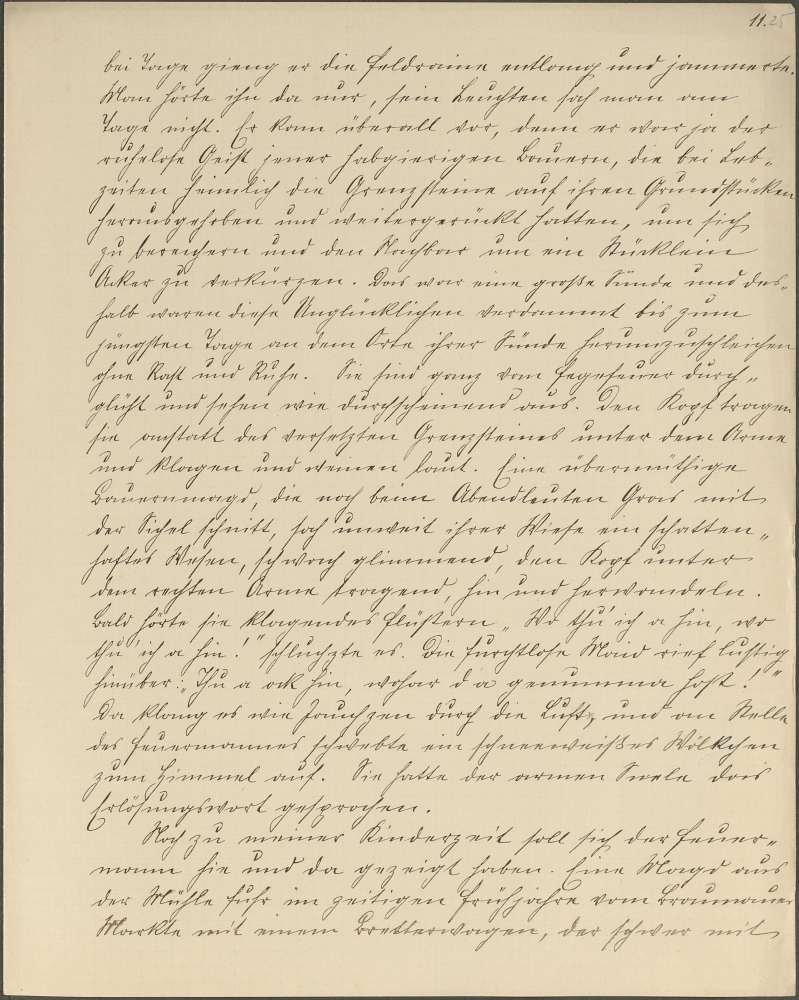 11. 25
bei Tage gieng er die Feldraine entlang und jammerte.
Man hörte ihn da nur, sein Leuchten sah man am
Tage nicht. Er kam überall vor, denn er war ja der
ruhelose Geist jener habgierigen Bauern, die bei Leb-
zeiten heimlich die Grenzsteine auf ihren Grundstücken
herausgehoben und weitergerückt hatten, um sich
zu bereichern und den Nachbar um ein Stücklein
Acker zu verkürzen. Das war eine große Sünde und des-
halb waren diese Unglücklichen verdammt bis zum
jüngsten Tage an dem Orte ihrer Sünde herumzuschleichen
ohne Rast und Ruhe. Sie sind ganz vom Fegefeuer durch-
glüht und sehen wie durchscheinend aus. Den Kopf tragen
sie anstatt des versetzten Grenzsteines unter dem Arme
und klagen und weinen laut. Eine übermüthige
Bauernmagd, die noch beim Abendleuten Gras mit
der Sichel schnitt, sah unweit ihrer Wiese ein schatten-
haftes Wesen, schwach glimmend, den Kopf unter
dem rechten Arme tragend, hin und herwandeln.
Bald hörte sie klagendes Flüstern „Wo thu' ich a hin, wo
thu' ich a hin!" schluchzte es. Die furchtlose Maid rief lustig
hinüber: „Thu a ock hin, wohar d a genumma host!"
Da klang es wie Jauchzen durch die Luft, und an Stelle
des Feuermannes schwebte ein schneeweißes Wölkchen
zum Himmel auf. Sie hatte der armen Seele das
Erlösungswort gesprochen.
Noch zu meiner Kinderzeit soll sich der Feuer-
mann hie und da gezeigt haben. Eine Magd aus
der Mühle fuhr im zeitigen Frühjahre vom Braunauer
Markte mit einem Bretterwagen, der schwer mit